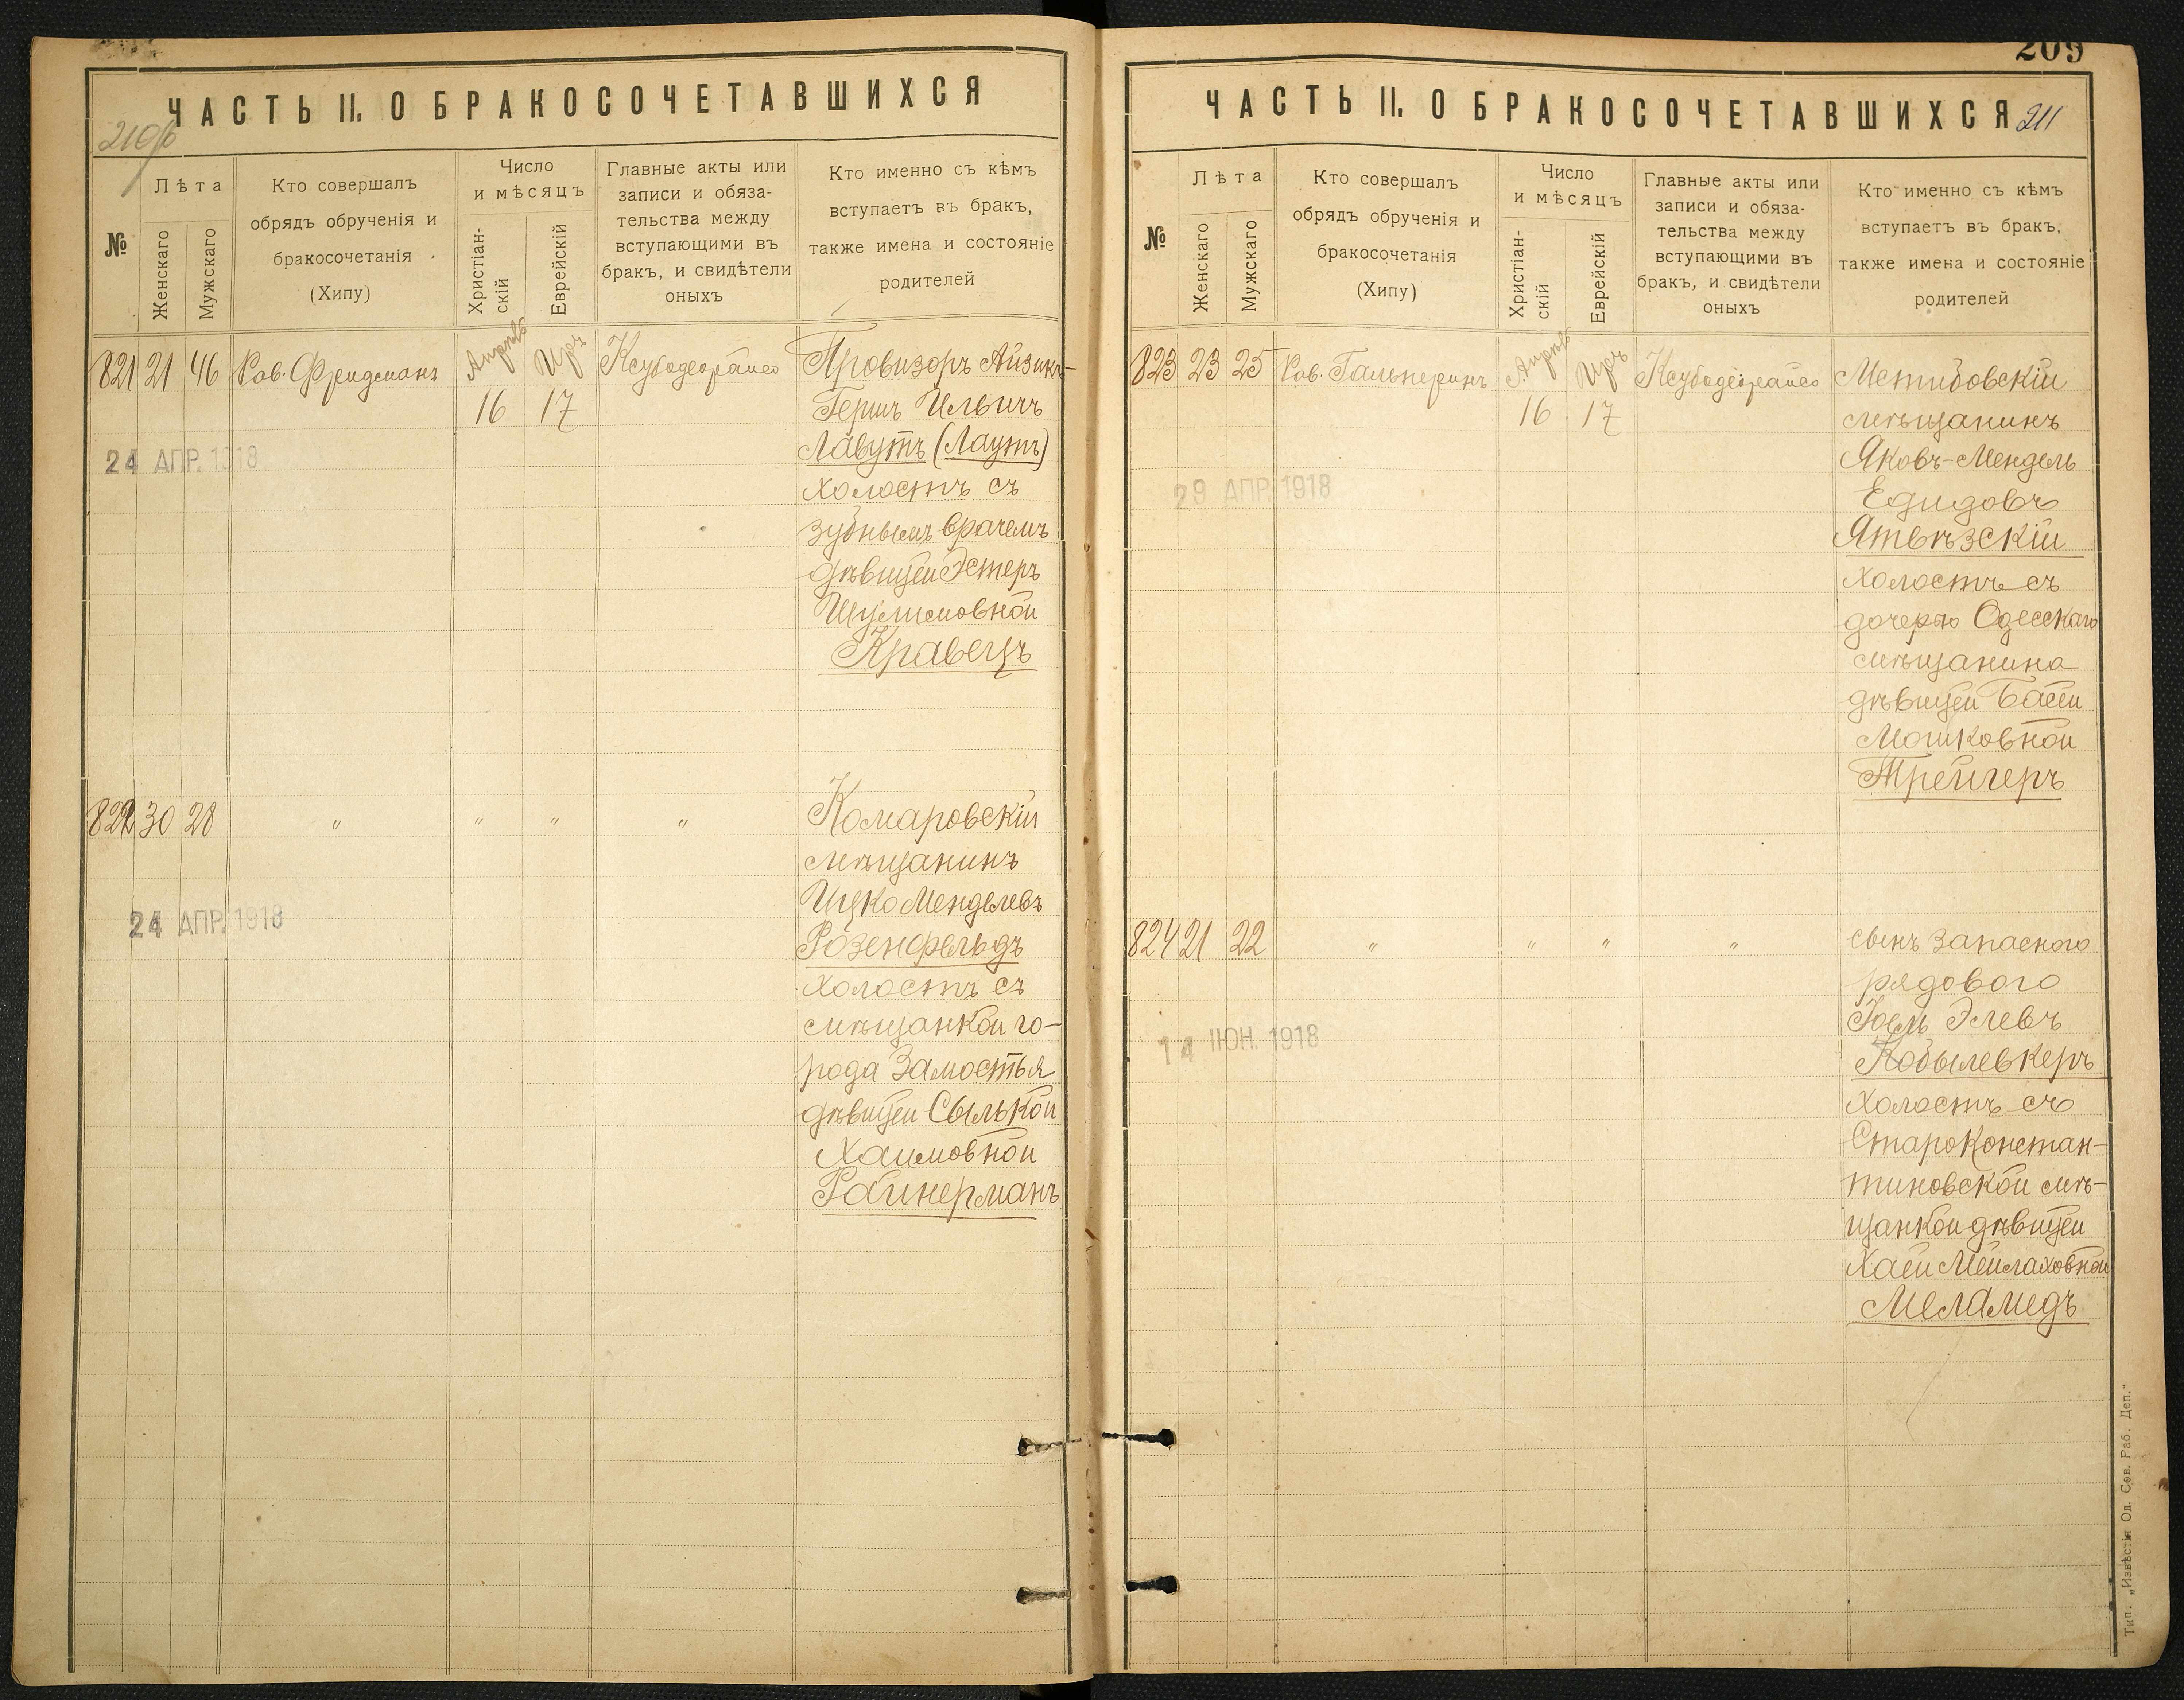 ЧАСТЬ II. О БРАКОСОЧЕТАВШИХСЯ
210об
№
Лѣта
Женскаго
Мужскаго
Кто совершалъ
обрядъ обрученія и
бракосочетанія
(Хипу)
Число
и мѣсяцъ
Христіан-
скій
Еврейскій
Главные акты или
записи и обяза-
тельства между
вступающими въ
бракъ, и свидѣтели
оныхъ
Кто именно съ кѣмъ
вступаетъ въ бракъ,
также имена и состояніе
родителей
821 21 46 Рав. Фридманъ Апрѣль Иръ Ксубодеорайсо Провизоръ Айзикъ-
16 17 Гершъ Ильичъ
Лавутъ (Лаутъ)
24 АПР. 1918
холостъ съ
зубнымъ врачемъ
дѣвицей Эстеръ
Шулимовной
Кравецъ
822 30 28 " " " " Комаровскій
мѣщанинъ
Ицко Менделевъ
24 АПР. 1918
Розенфельдъ
холостъ съ
мѣщанкой го-
рода Замостья
дѣвицей Сылькой
Хаимовной
Райнерманъ
209
ЧАСТЬ II. О БРАКОСОЧЕТАВШИХСЯ
211
№
Лѣта
Женскаго
Мужскаго
Кто совершалъ
обрядъ обрученія и
бракосочетанія
(Хипу)
Число
и мѣсяцъ
Христіан-
скій
Еврейскій
Главные акты или
записи и обяза-
тельства между
вступающими въ
бракъ, и свидѣтели
оныхъ
Кто именно съ кѣмъ
вступаетъ въ бракъ,
также имена и состояніе
родителей
823 23 25 Рав. Гальперинъ Апрѣль Иръ Ксубодеорайсо Метибовскій
16 17 мѣщанинъ
Яковъ-Мендель
29 АПР. 1918
Едидовъ
Ятвѣзскій
холостъ съ
дочерью Одесскаго
мѣщанина
дѣвицей Басей
Мошковной
Трейгеръ
824 21 22 " " " " сынъ запасного
рядового
Іоель Элевъ
14 ІЮН. 1918
Кобылевкеръ
холостъ съ
Староконстан-
тиновской мѣ-
щанкой дѣвицей
Хаей Мейлаховной
Меламедъ
Тип. „Извѣстія Од. Сов. Раб. Деп."